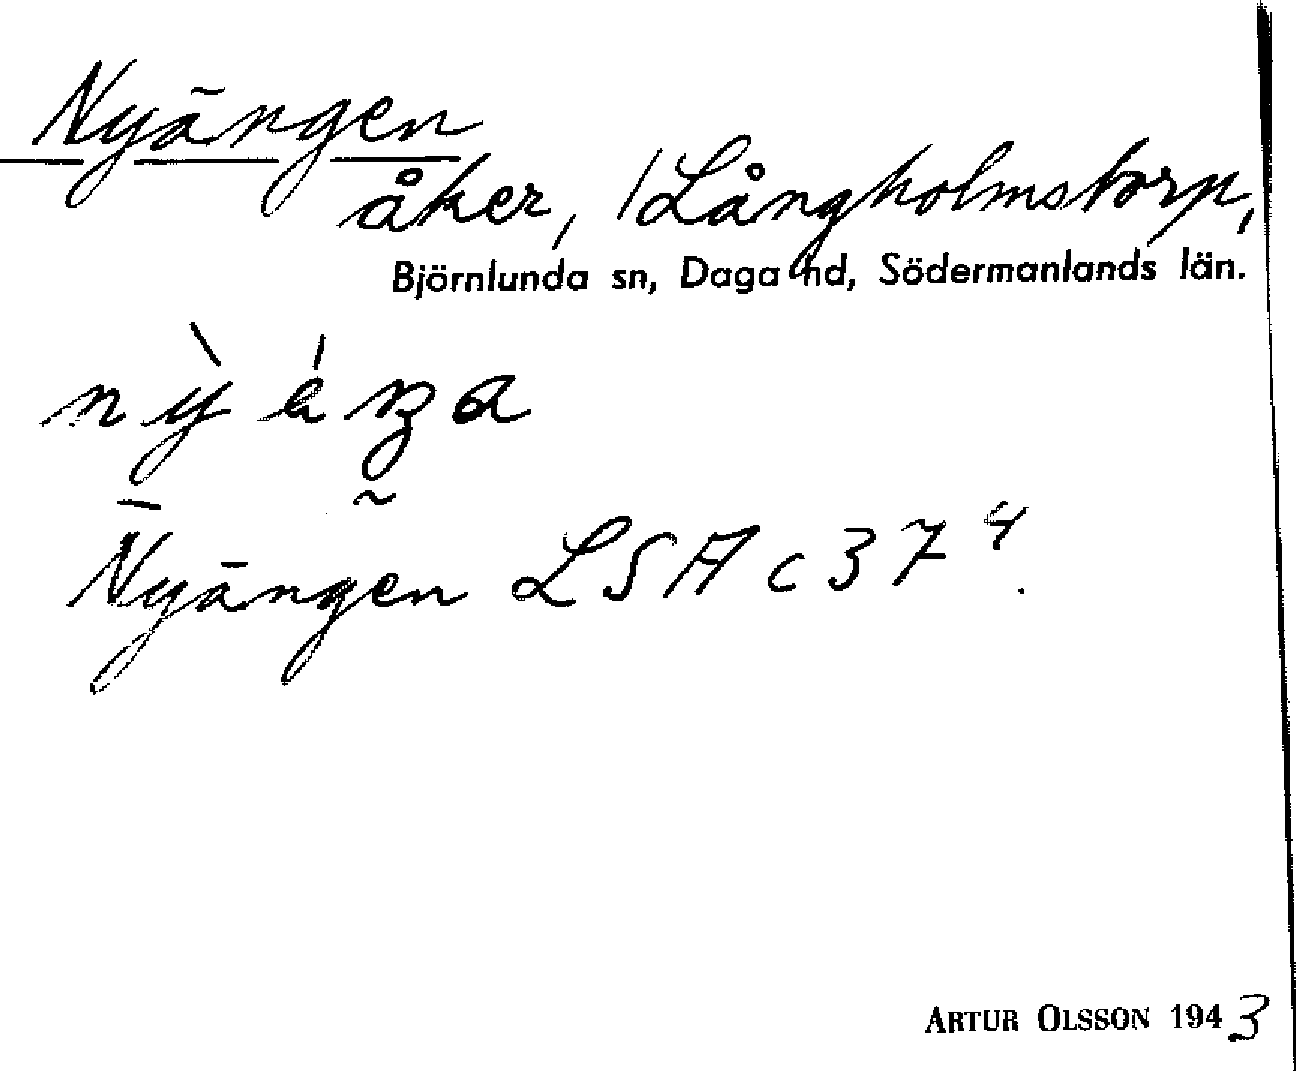 Nyängen
åker, /Långholmstorp,
Björnlunda sn, Daga hd, Södermanlands län.
nỳáŋa
Nyängen LSA c 37⁴.
ARTUR OLSSON 1943